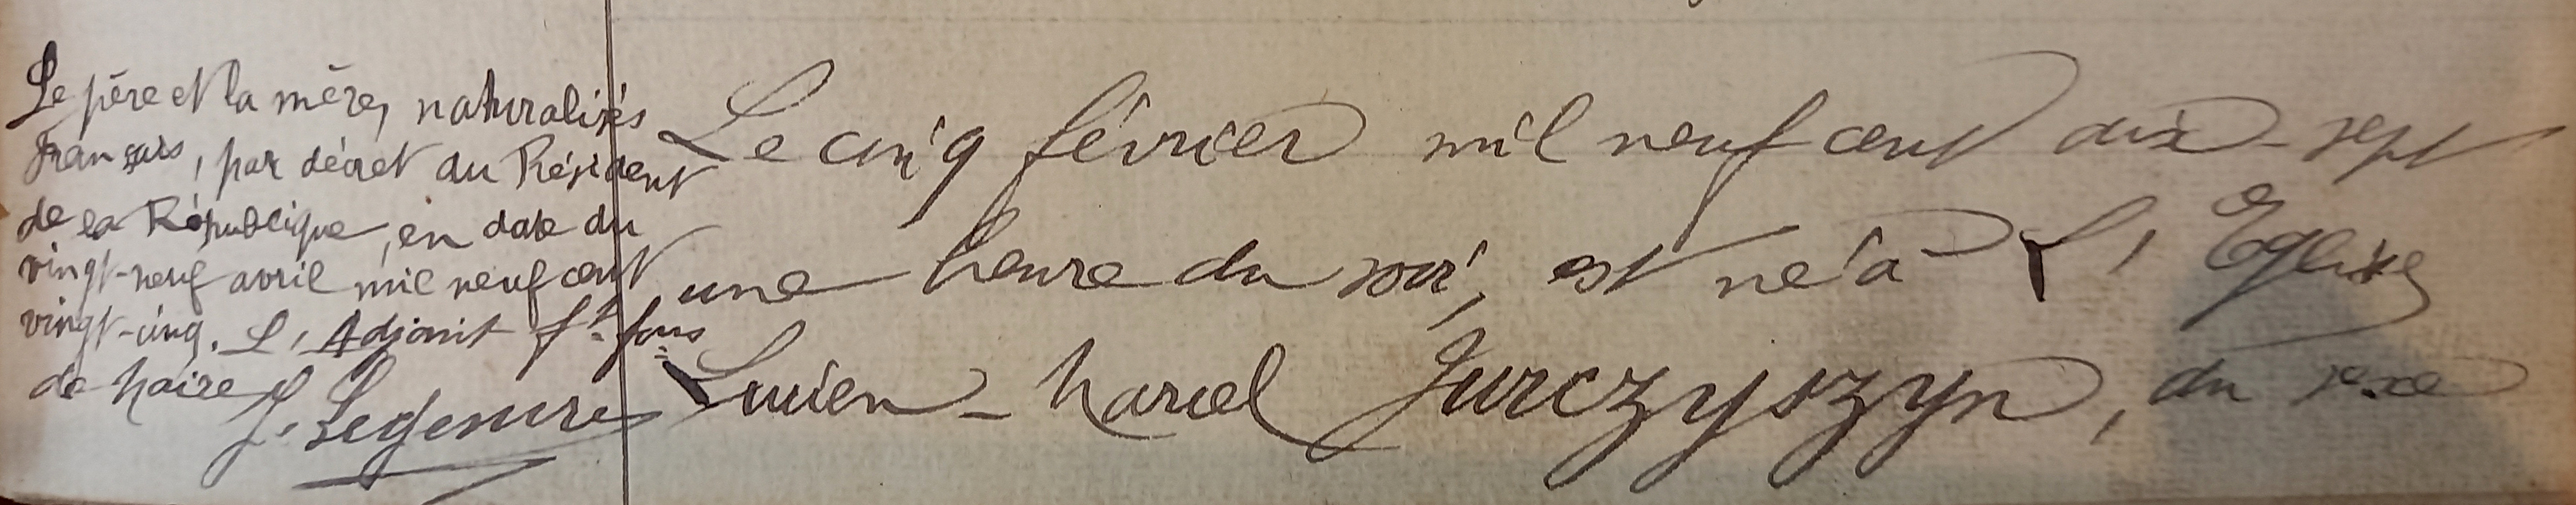 Le père et la mère, naturalisés
Français, par décret du Président
de la République, en date du
vingt-neuf avril mil neuf cent
vingt-cinq. L'Adjoint ft. fons
de Maire
Le cinq février mil neuf cent dix-sept
une heure du soir, est né à L'Eglise,
Lucien-Marcel Jurczyszyn, du sexe